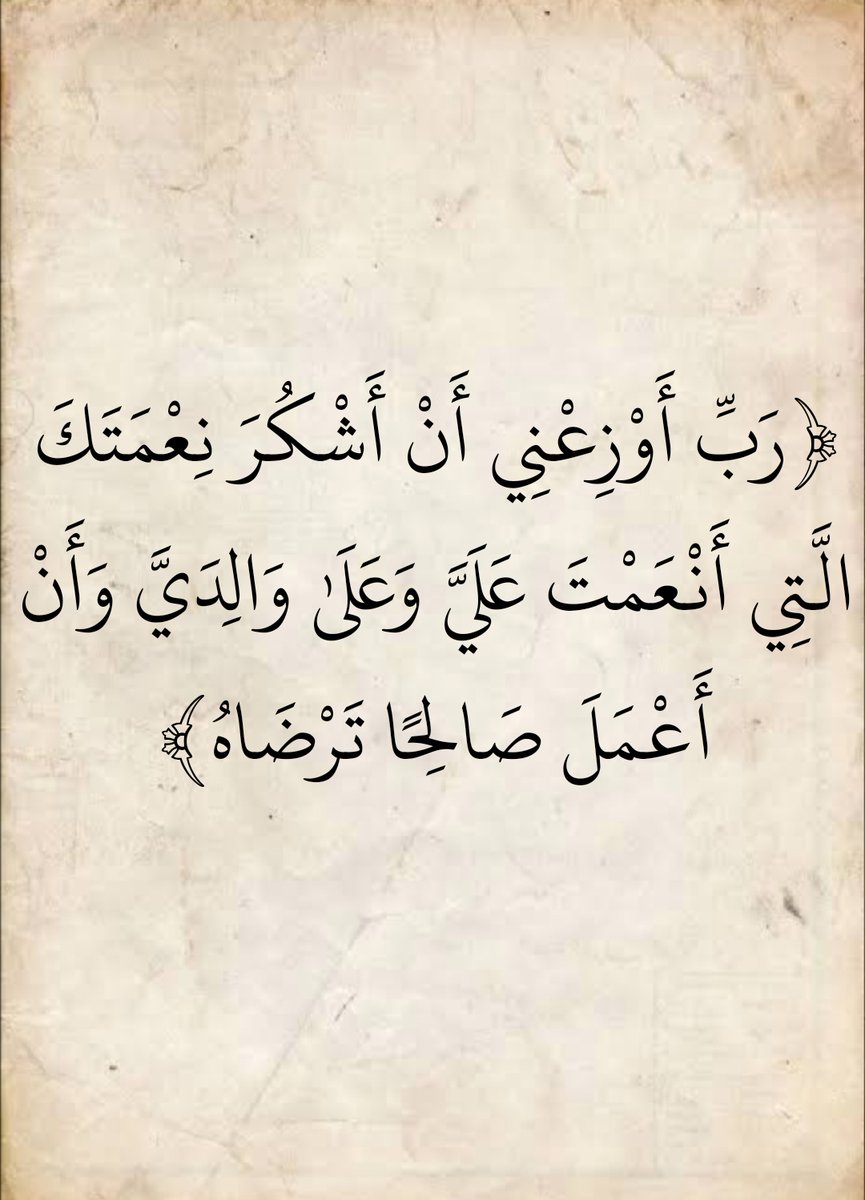 ﴿رَبِّ أَوْزِعْنِي أَنْ أَشْكُرَ نِعْمَتَكَ
الَّتِي أَنْعَمْتَ عَلَيَّ وَعَلَىٰ وَالِدَيَّ وَأَنْ
أَعْمَلَ صَالِحًا تَرْضَاهُ﴾